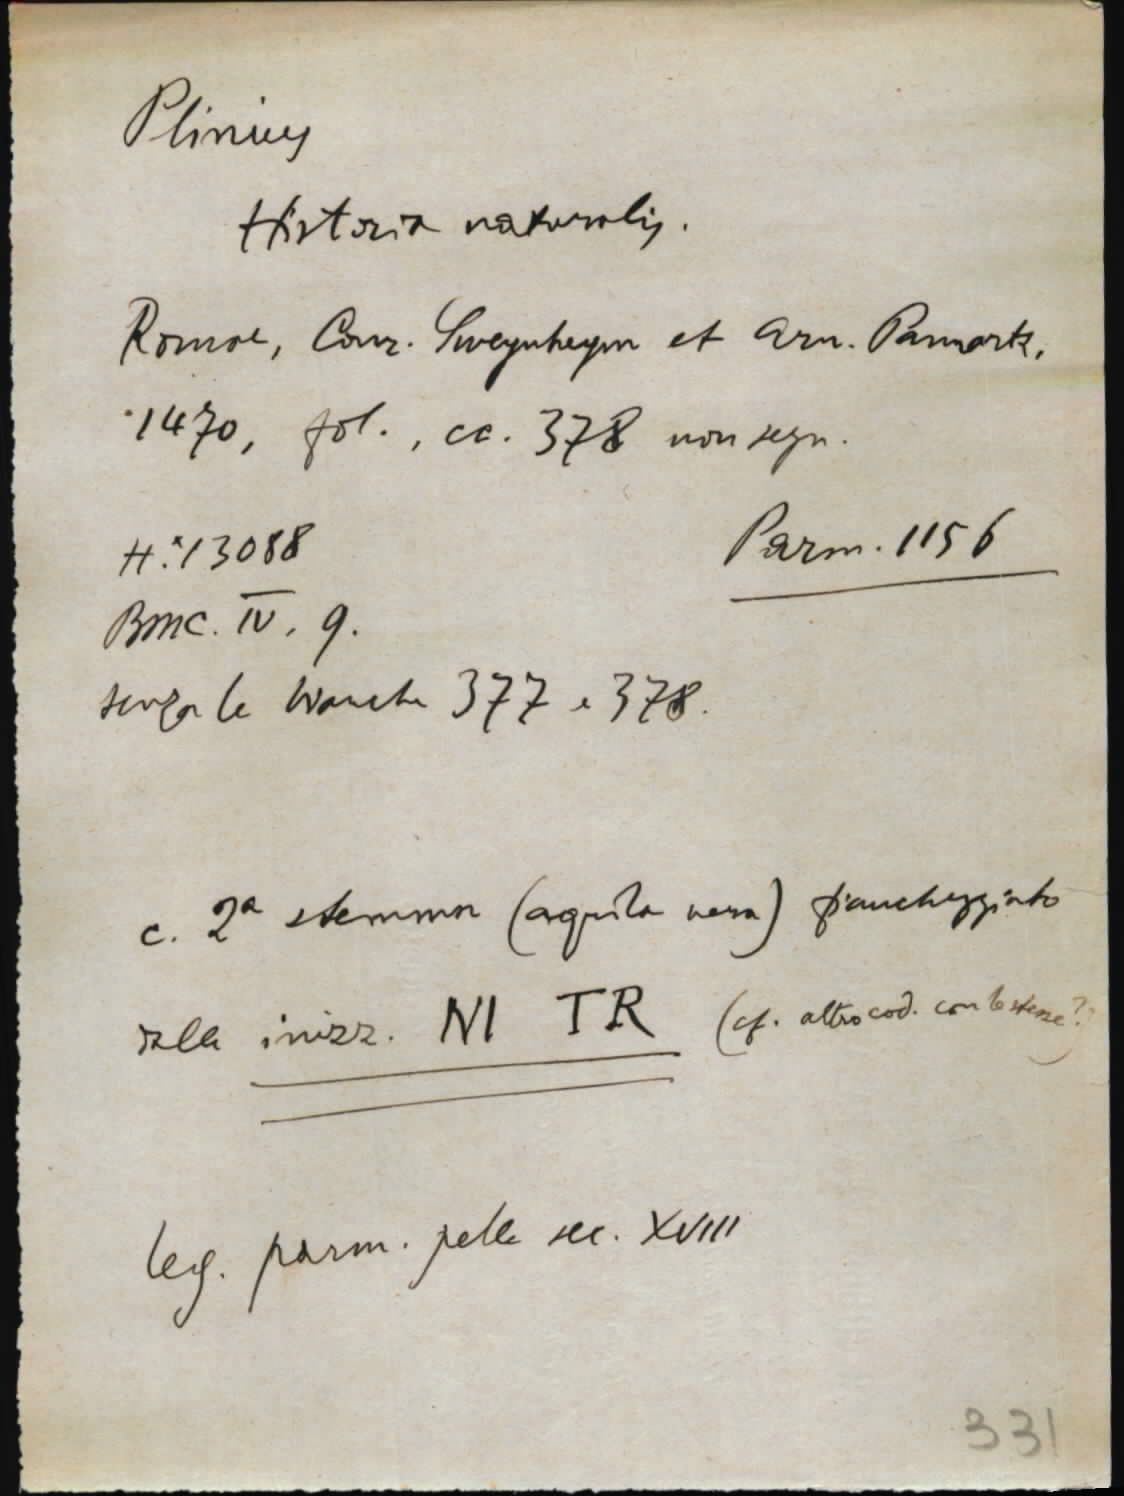 Plinius
Historia naturalis.
Romae, Conr. Sweynheym et Arn. Pannartz,
1470, fol., cc. 378 non segn.
H.*13088
Parm. 1156
BMC. IV, 9.
senza le bianche 377 e 378.
c. 2a stemma (aquila nera) fiancheggiato
dalle inizz. NI TR (cf. altro cod. con le stesse?)
leg. parm. pelle sec. XVIII
331